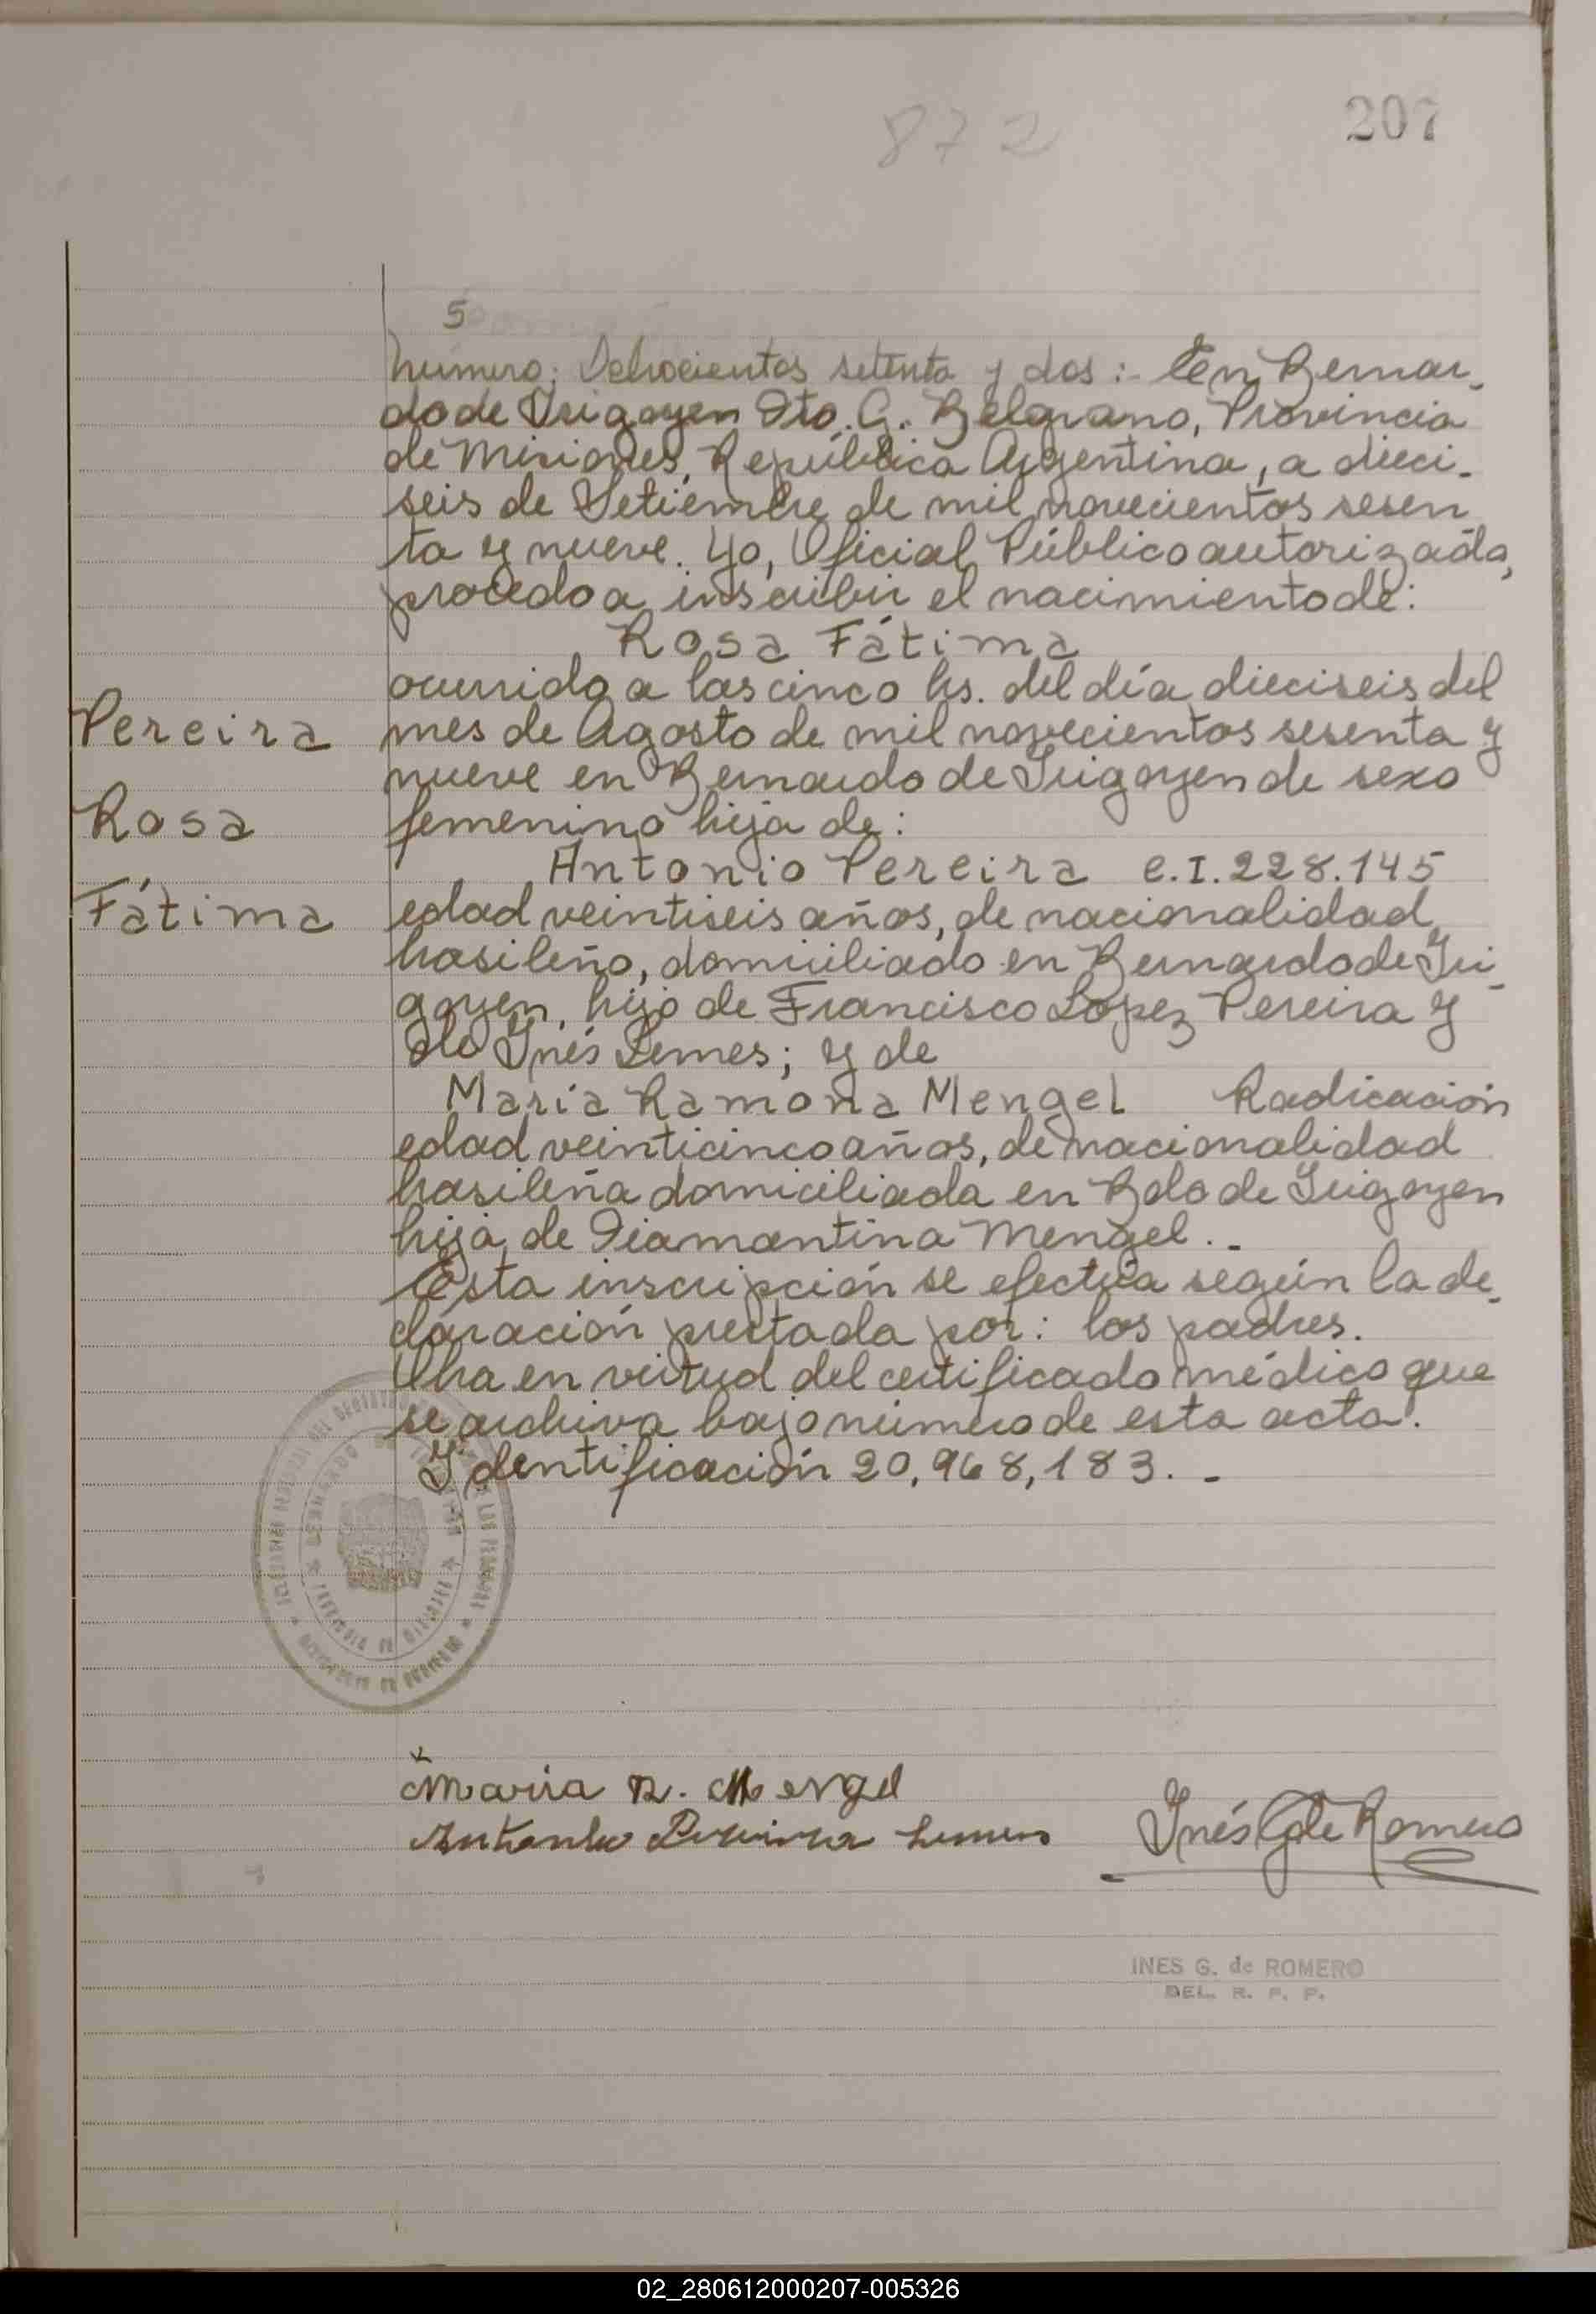 872
207
5
Número: Ochocientos setenta y dos:- En Bernar-
do de Irigoyen Dto. G. Belgrano, Provincia
de Misiones, República Argentina, a dieci-
seis de Setiembre de mil novecientos sesen
ta y nueve. Yo, Oficial Público autorizada,
procedo a inscribir el nacimiento de:
Rosa Fátima
ocurrido a las cinco hs. del día dieciseis del
Pereira
mes de Agosto de mil novecientos sesenta y
nueve en Bernardo de Irigoyen de sexo
Rosa
femenino hija de:
Antonio Pereira C.I. 228.145
Fátima
edad veintiseis años, de nacionalidad
brasileño, domiciliado en Bernardo de Iri-
goyen, hijo de Francisco Lopez Pereira y
de Inés Lemes; y de
María Ramona Mengel Radicación
edad veinticinco años, de nacionalidad
brasileña domiciliada en Bdo de Irigoyen
hija de Diamantina Mengel.-
Esta inscripción se efectúa según la de-
claración prestada por: los padres.
Obra en virtud del certificado médico que
se archiva bajo número de esta acta.
Identificación 20,968,183.-
PROVINCIA DE MISIONES
Maria R. Mengel
Antonio Pereira Lemes
Inés G de Romero
INES G. de ROMERO
DEL. R. P. P.
02_280612000207-005326